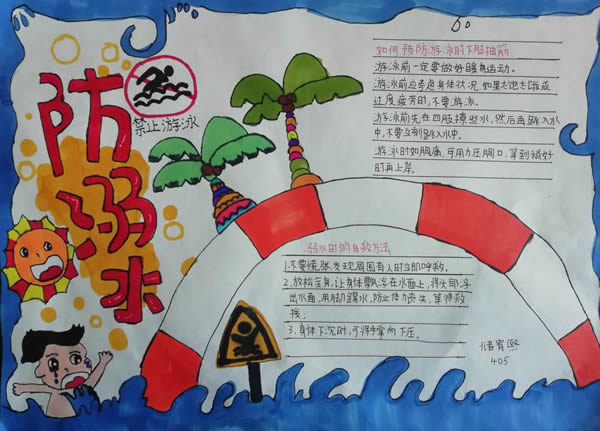 防溺水
禁止游泳
如何预防游泳时下肢抽筋
游泳前一定要做好暖身运动。
游泳前应考虑身体状况,如果太饱太饿或
过度疲劳时,不要游泳。
游泳前先在四肢撩些水,然后再跳入水
中,不要立刻跳入水中。
游泳时如胸痛,可用力压胸口,等到稍好
时再上岸。
溺水时的自救方法
1.不要慌张,发现周围有人时立即呼救。
2.放松全身,让身体飘浮在水面上,将头部浮
出水面,用脚踢水,防止体力丧失,等待救
援。
3.身体下沉时,可将手掌向下压。
405